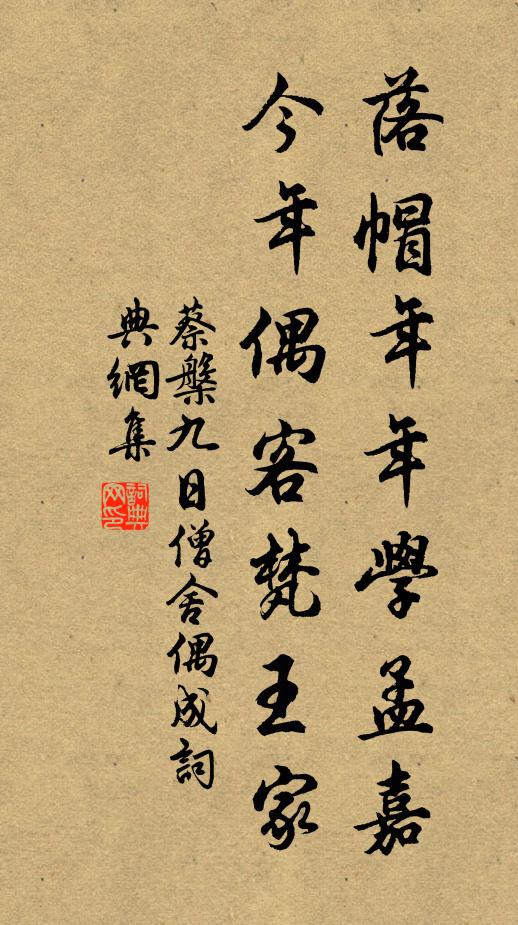 落帽年年學孟嘉
今年偶客梵王家
蔡槃九日僧舍偶成詞
典網集
詞典
网印